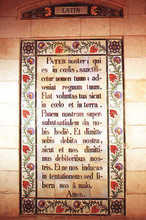 LATIN
PATER noster qui
es in cœlis, sanctifi-
cetur nomen tuum: ad-
veniat regnum tuum.
Fiat voluntas tua sicut
in cœlo et in terra.
Panem nostrum super-
substantialem da no-
bis hodiè. Et dimitte
nobis debita nostra,
sicut et nos dimitti-
mus debitoribus nos-
tris. Et ne nos inducas
in tentationem sed li-
bera nos à malo.
Amen.